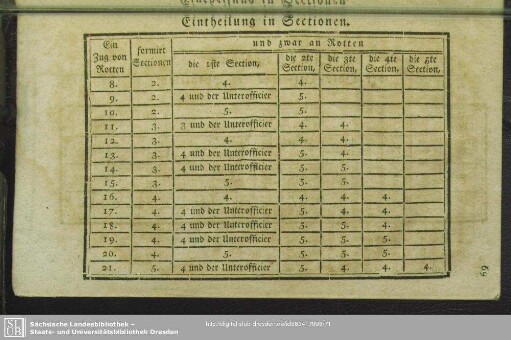 Eintheilung in Sectionen.
Ein Zug von Rotten | formirt Sectionen | und zwar an Rotten
die 1ste Section, | die 2te Section, | die 3te Section, | die 4te Section, | die 5te Section,
8. | 2. | 4. | 4.
9. | 2. | 4 und der Unterofficier | 5.
10. | 2. | 5. | 5.
11. | 3. | 3 und der Unterofficier | 4. | 4.
12. | 3. | 4. | 4. | 4.
13. | 3. | 4 und der Unterofficier | 5. | 4.
14. | 3. | 4 und der Unterofficier | 5. | 5.
15. | 3. | 5. | 5. | 5.
16. | 4. | 4. | 4. | 4. | 4.
17. | 4. | 4 und der Unterofficier | 5. | 4. | 4.
18. | 4. | 4 und der Unterofficier | 5. | 5. | 4.
19. | 4. | 4 und der Unterofficier | 5. | 5. | 5.
20. | 4. | 5. | 5. | 5. | 5.
21. | 5. | 4 und der Unterofficier | 5. | 4. | 4. | 4.
69
SLUB
Sächsische Landesbibliothek –
Staats- und Universitätsbibliothek Dresden